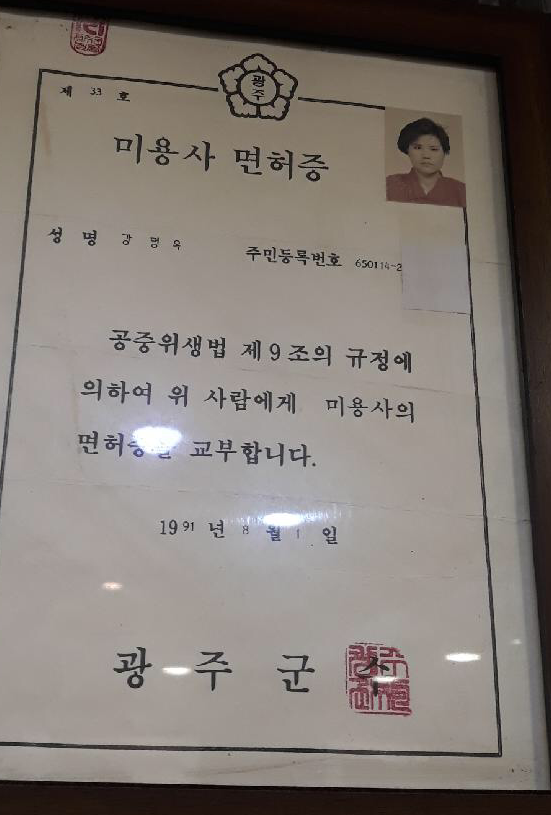 광주
제 33 호
미용사 면허증
성명 강명옥 주민등록번호 650114-2
공중위생법 제9조의 규정에
의하여 위 사람에게 미용사의
면허증을 교부합니다.
1991년 8월 1일
광주군수